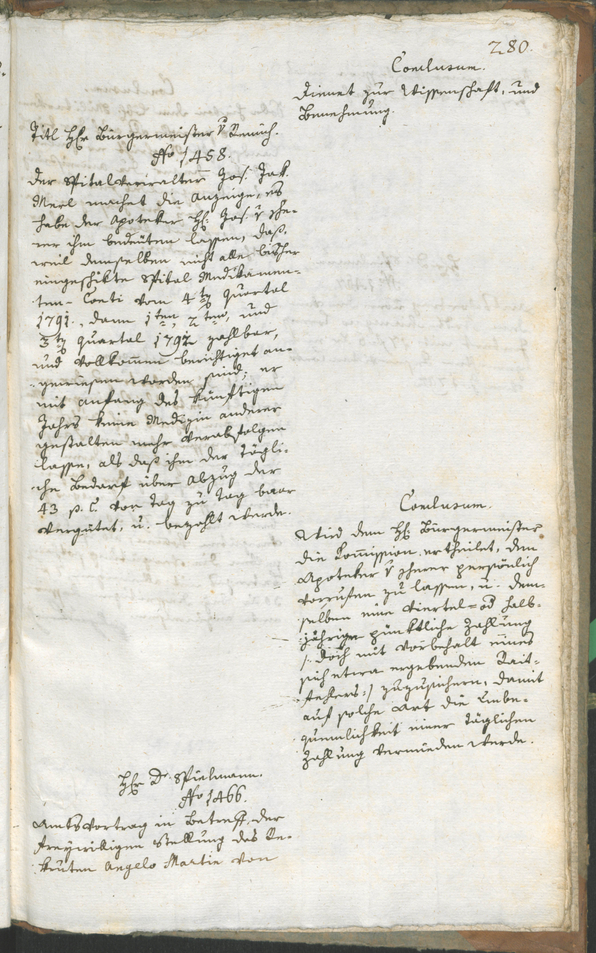 280.
Conclusum.
Dienet zur Wissenschaft, und
Benehmung.
Titl Hr Bürgermeister v
No 1458.
Der Spitalverwalter Jos. Jak.
Merl machet die Anzeige, es
habe der Apoteker H: Jos. v
ihm bedeuten lassen, daß,
weil demselben nicht alle bisher
eingeschikte Spital Medikamen-
ten-Conti vom 4ten Quartal
1791., dann 1ten, 2ten, und
3ten Quartal 1792 zahlbar,
und vollkommen berichtiget an-
gewiesen worden sind, er
mit anfang des künftigen
Jahrs keine Medizin anderer
gestalten mehr verabfolgen
lasse, als daß ihm der tägli-
che Bedarf über Abzug der
43 p. C. von Tag zu Tag baar
vergütet, u. bezahlt werde.
Conclusum.
Wird dem H: Bürgermeister
die Commission ertheilet, den
Apoteker v persönlich
vorrufen zu lassen, u. dem-
selben eine viertel- od halb-
jährige pünktliche Zahlung
/: doch mit Vorbehalt eines
sich etwa ergebenden Rait-
fehlers :/ zuzusichern, damit
auf solche Art die Unbe-
quemlichkeit einer täglichen
Zahlung vermieden werde.
Hr Dr. Spielmann.
No 1466.
Amtsvortrag in Betreff der
freywilligen Stellung des Re-
kruten Angelo Martin von